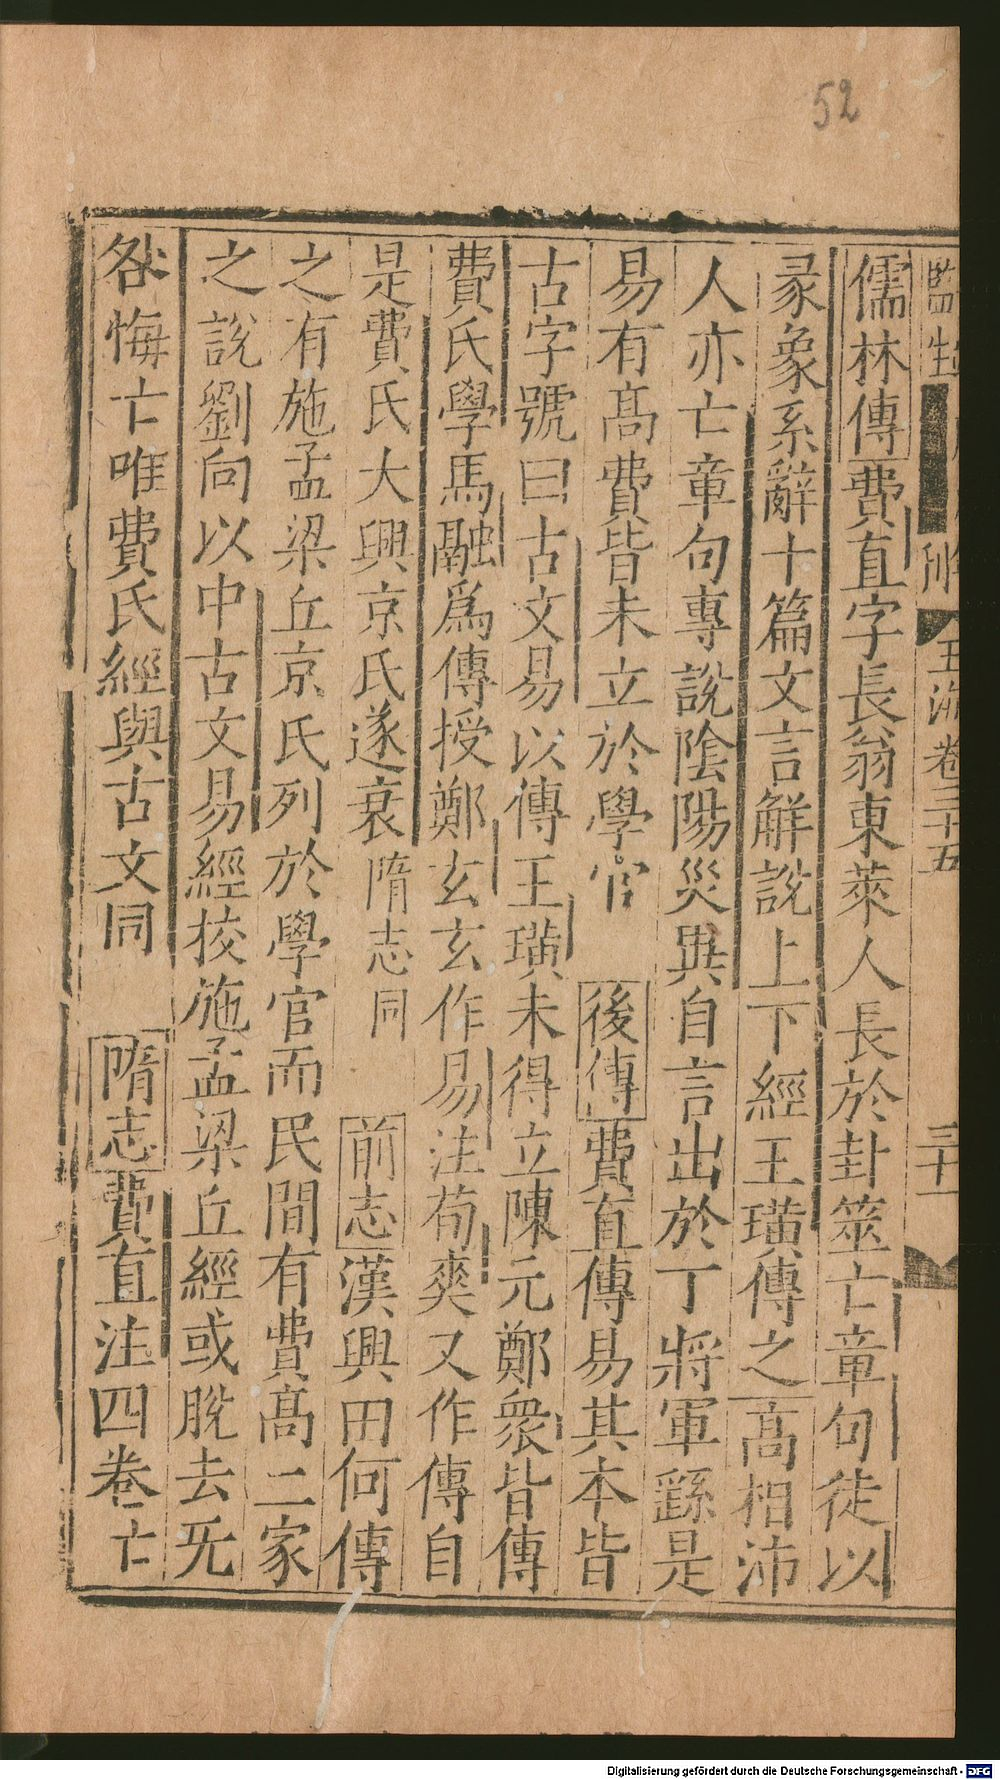 52
監生
刊
玉海卷三十五
三十一
儒林傳費直字長翁東萊人長於卦筮亡章句徒以
彖象系辭十篇文言解說上下經王璜傳之高相沛
人亦亡章句專說陰陽災異自言出於丁將軍繇是
易有高費皆未立於學官後傳費直傳易其本皆
古字號曰古文易以傳王璜未得立陳元鄭衆皆傳
費氏學馬融爲傳授鄭玄玄作易注荀爽又作傳自
是費氏大興京氏遂衰隋志同前志漢興田何傳
之有施孟梁丘京氏列於學官而民間有費高二家
之說劉向以中古文易經校施孟梁丘經或脫去无
咎悔亡唯費氏經與古文同隋志費直注四卷亡
Digitalisierung gefördert durch die Deutsche Forschungsgemeinschaft - DFG